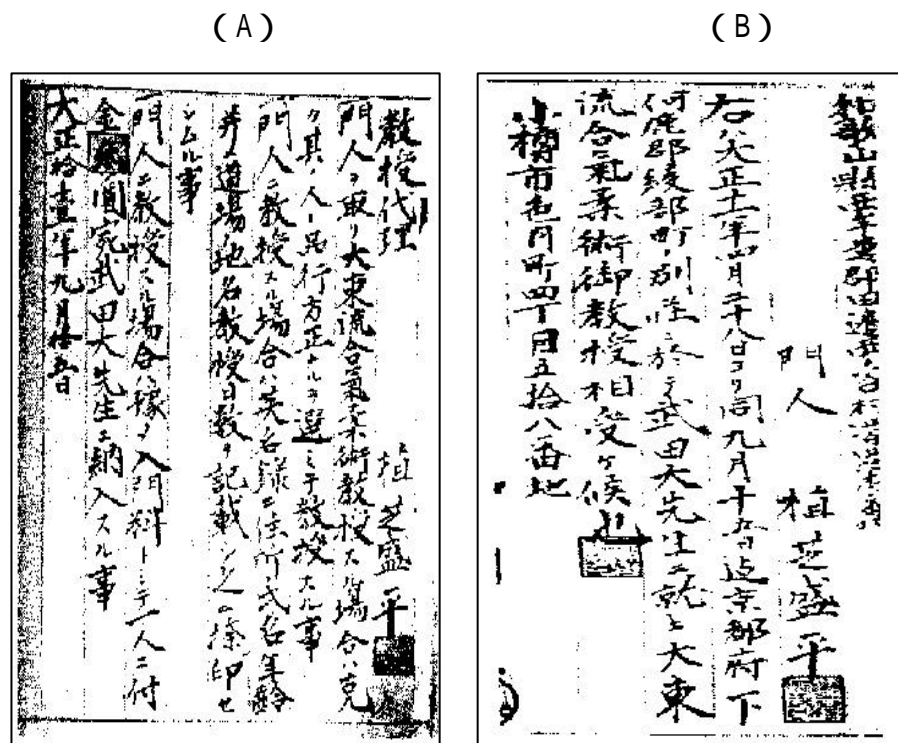 (A)
教授代理 植芝盛平
門人ヲ取リ大東流合氣柔術教授スル場合ハ克
ク其ノ人ノ品行方正ナルヲ選ミテ教授スル事
門人ニ教授スル場合ハ英名録ニ住所氏名年齢
并ニ道場地名教授日数ヲ記載シ之ニ捺印セ
シムル事
門人ニ教授スル場合ハ ノ入門料トシテ一人ニ付
金 圓宛武田大先生ニ納入スル事
大正拾壹年九月拾五日
(B)
和歌山縣西牟婁郡田邊
門人 植芝盛平
右ハ大正十一年四月二十八日ヨリ同九月十五日迠京都府下
何鹿郡綾部町ノ別 ニ於テ武田大先生ニ就キ大東
流合氣柔術御教授相受ケ候也
小樽市色内町四丁目五拾八番地